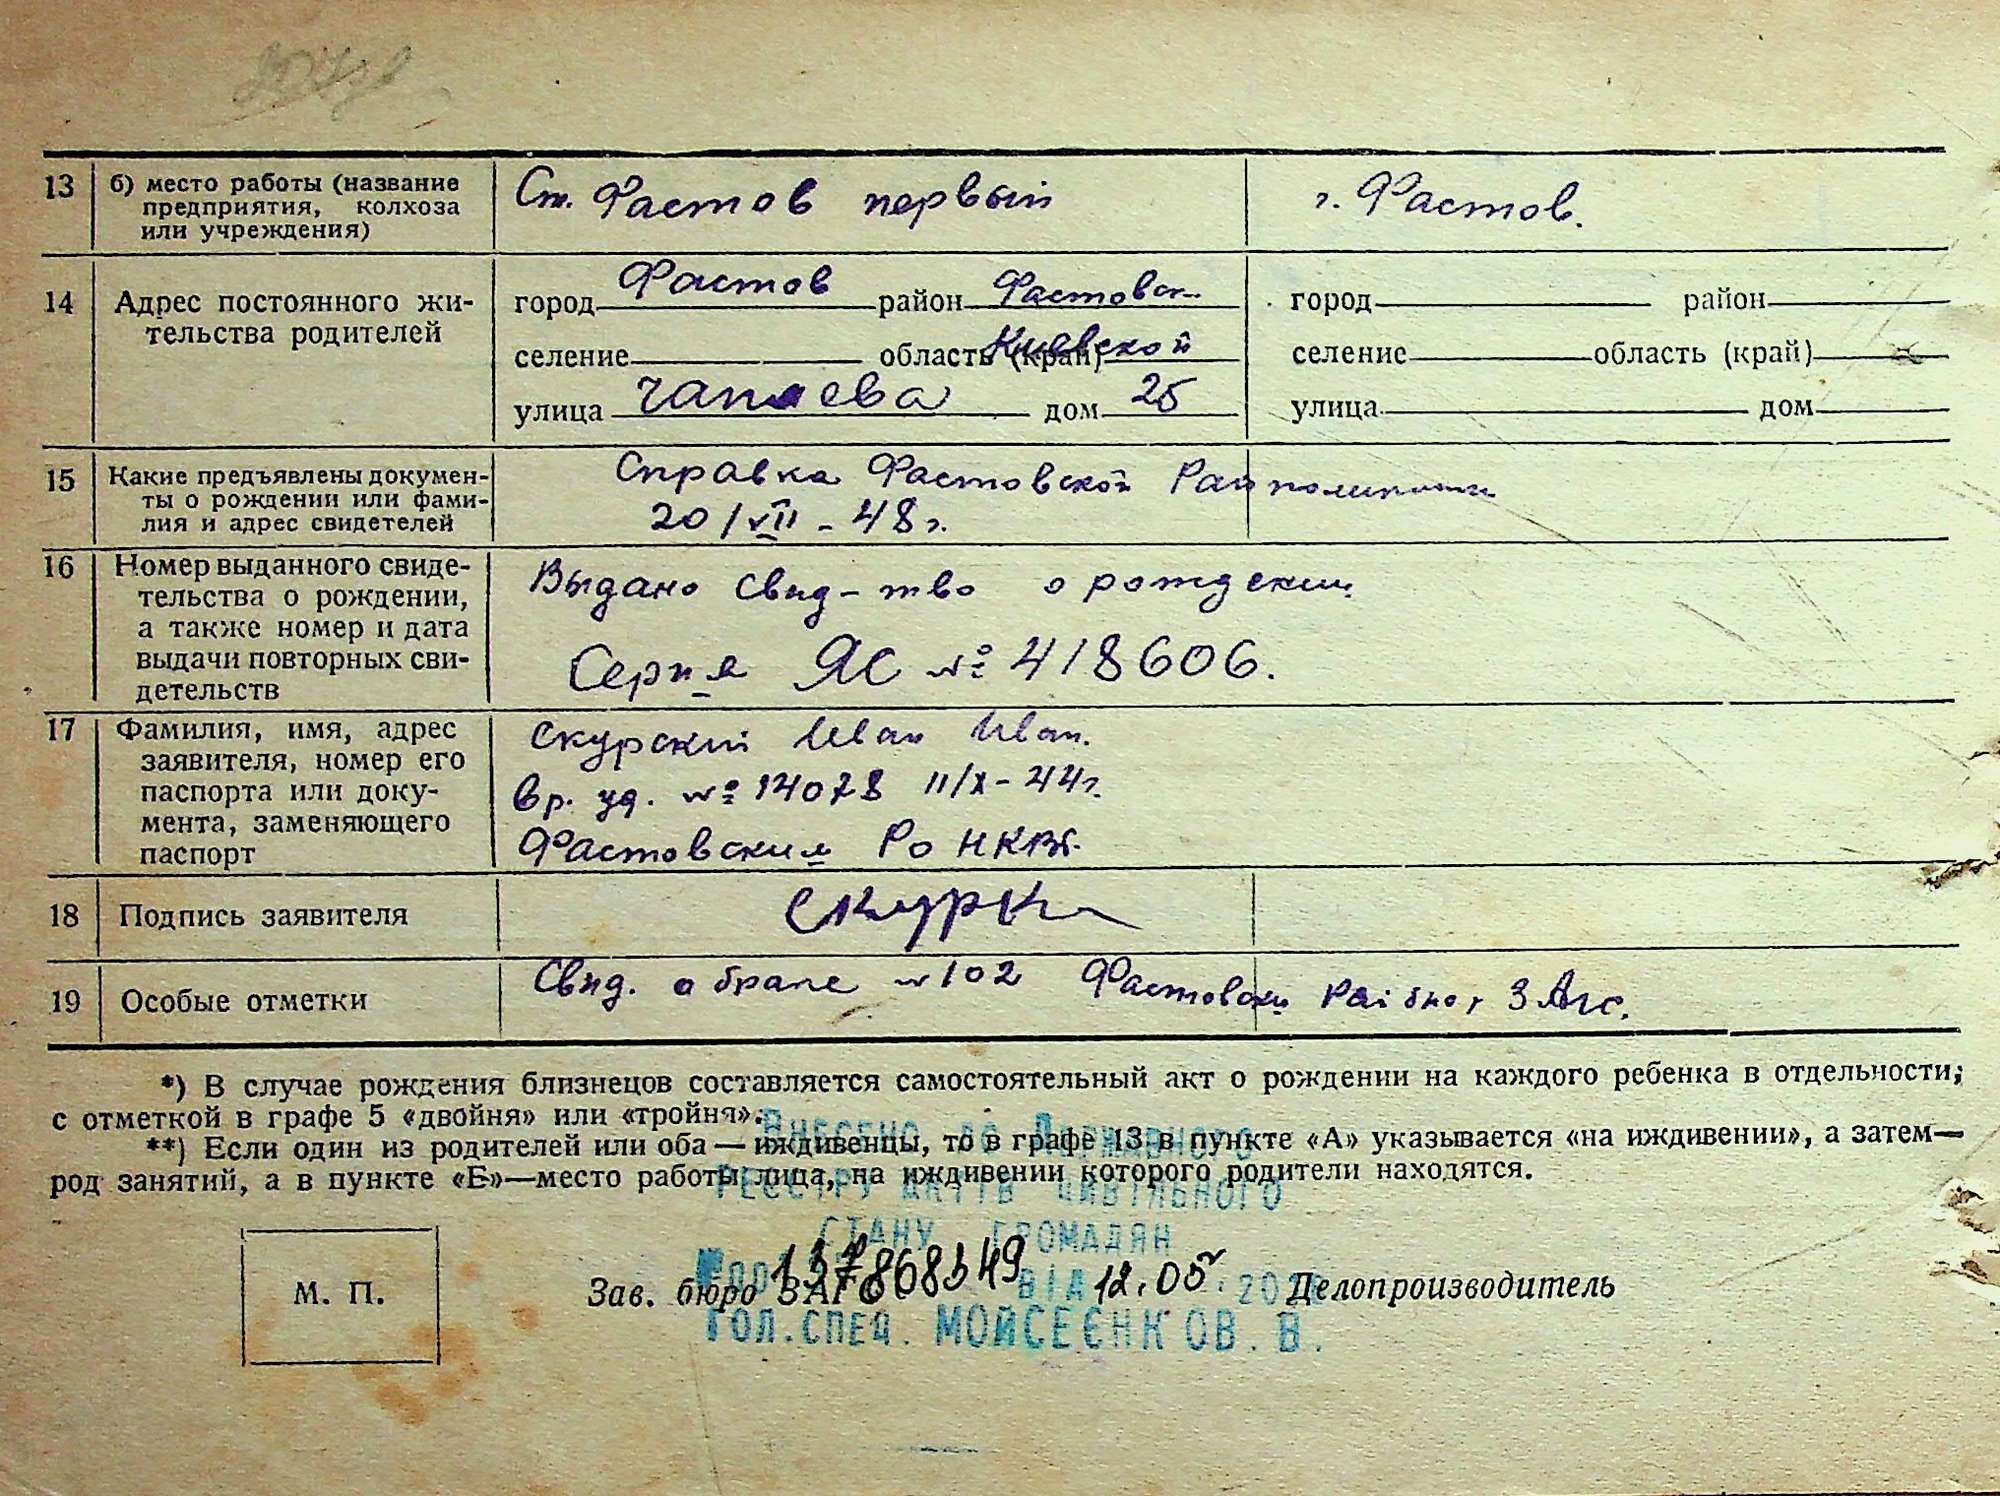 13 б) место работы (название предприятия, колхоза или учреждения)
Ст. Фастов первый
г. Фастов.
14 Адрес постоянного жи-
тельства родителей
город Фастов район Фастовск.
селение область (край) Киевской
улица Чапаева дом 25
город район
селение область (край)
улица дом
15 Какие предъявлены докумен-
ты о рождении или фами-
лия и адрес свидетелей
Справка Фастовской
20/VII - 48 г.
16 Номер выданного свиде-
тельства о рождении,
а также номер и дата
выдачи повторных сви-
детельств
Выдано свид-тво о рождении
Серия ЯС № 418606.
17 Фамилия, имя, адрес
заявителя, номер его
паспорта или доку-
мента, заменяющего
паспорт
Скурский Иван Иван.
вр. уд. № 14078 11/X - 44 г.
Фастовским РО НКВД.
18 Подпись заявителя
19 Особые отметки
Свид. о браке № 102 Фастовск ЗАГС.
*) В случае рождения близнецов составляется самостоятельный акт о рождении на каждого ребенка в отдельности;
с отметкой в графе 5 «двойня» или «тройня».
**) Если один из родителей или оба — иждивенцы, то в графе 13 в пункте «А» указывается «на иждивении», а затем—
род занятий, а в пункте «Б»—место работы лица, на иждивении которого родители находятся.
Внесено до Державного
реєстру актів цивільного
стану громадян
М. П.
Зав. бюро ЗАГС
від 12.05
Делопроизводитель
гол.спец. Мойсеєнко В. В.